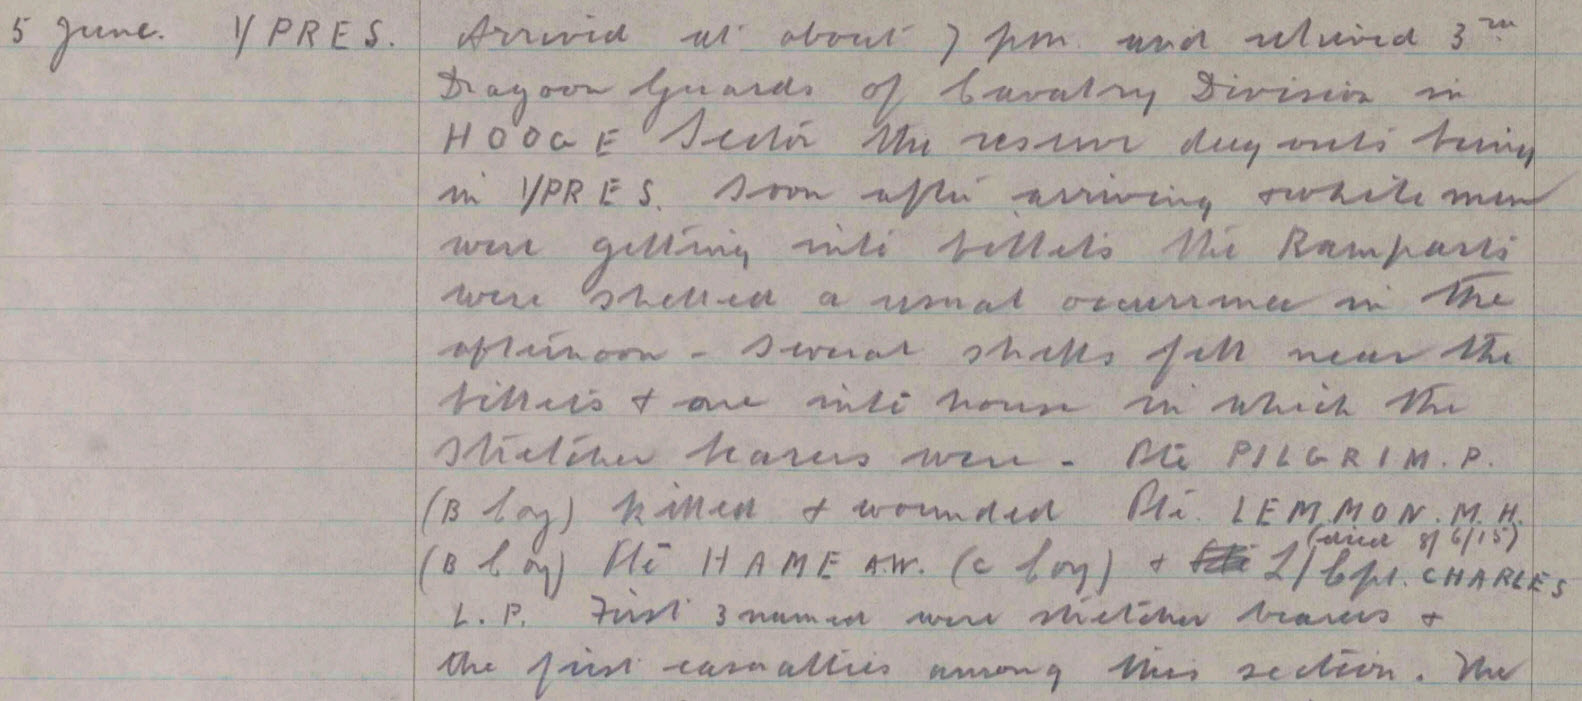 5 June. YPRES. Arrived at about 7 pm. and relieved 3rd
Dragoon Guards of Cavalry Division in
HOOGE Sector the reserve dug outs being
in YPRES. Soon after arriving & while men
were getting into billets the Ramparts
were shelled a usual occurrence in the
afternoon - Several shells fell near the
billets & one into house in which the
stretcher bearers were - Pte PILGRIM. P.
(B Coy) killed & wounded Pte. LEMMON. M.H.
(died 8/6/15)
(B Coy) Pte HAME A.W. (C Coy) & L/Cpl. CHARLES
L.P. First 3 named were stretcher bearers &
the first casualties among this section. The